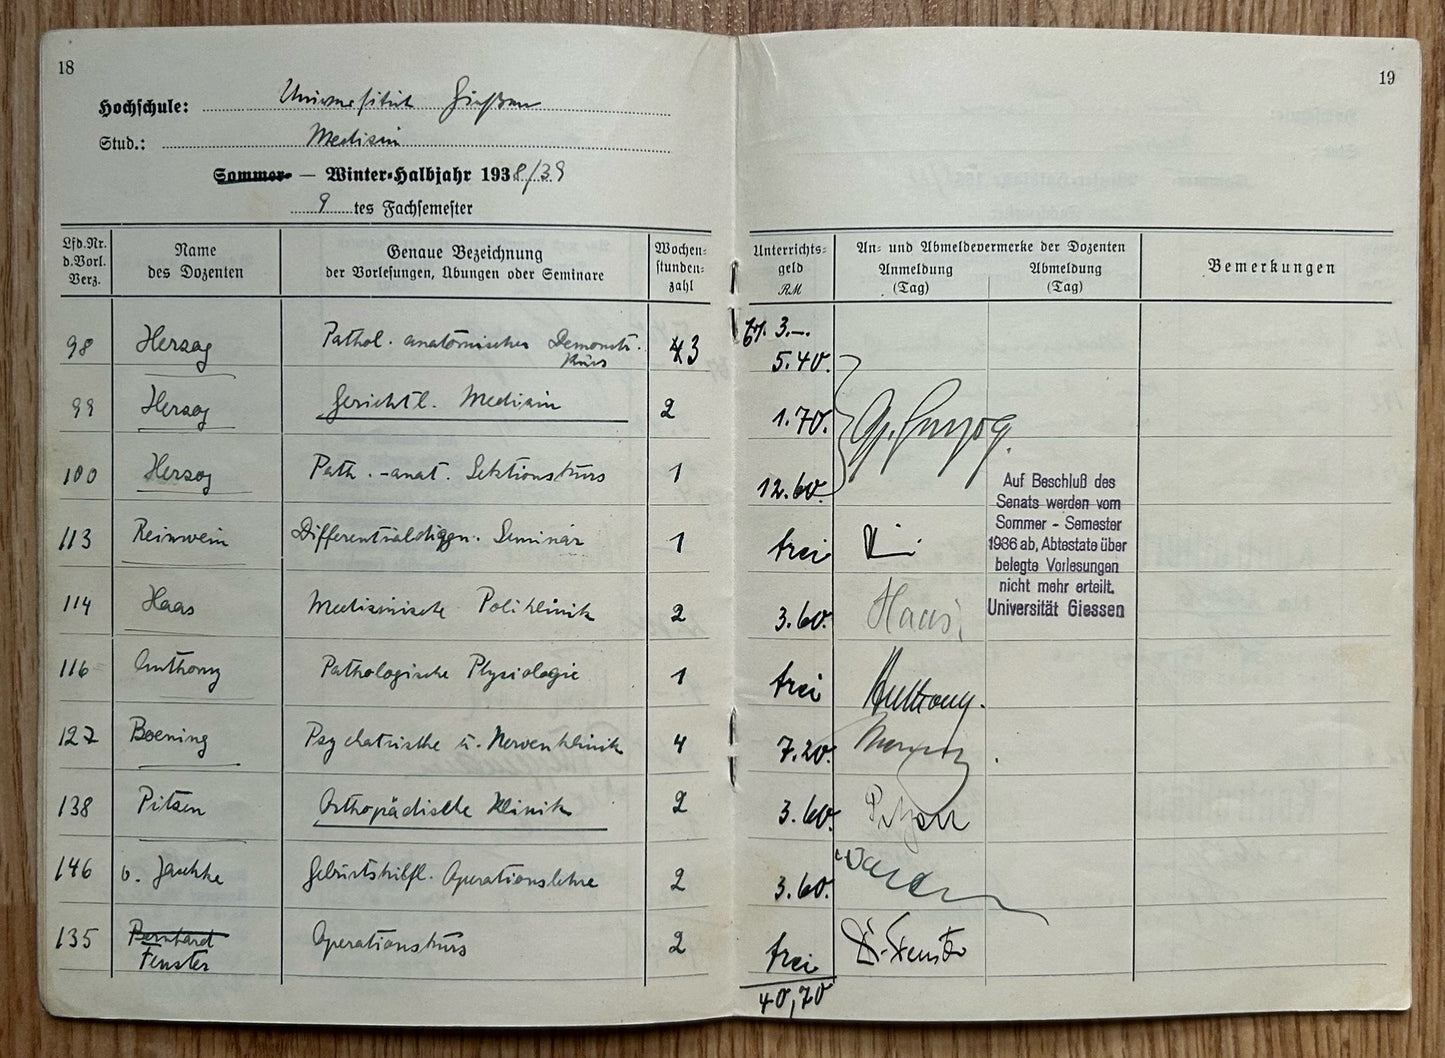 18
Hochschule: Universität Gießen
Stud.: Medizin
Sommer- — Winter-Halbjahr 1938/39
9tes Fachsemester
Lfd.Nr. d.Vorl. Verz.
Name des Dozenten
Genaue Bezeichnung der Vorlesungen, Übungen oder Seminare
Wochen-stunden-zahl
98 Herzog Pathol. anatomischer Demonstr. Kurs 3
99 Herzog Gerichtl. Medizin 2
100 Herzog Path.-anat. Sektionskurs 1
113 Reinwein Differentialdiagn. Seminar 1
114 Haas Medizinische Poliklinik 2
116 Anthony Pathologische Physiologie 1
127 Boening Psychatrische u. Nervenklinik 4
138 Pitzen Orthopädische Klinik 2
146 v. Jaschke Geburtshilfl. Operationslehre 2
135 Bernhard Fenster Operationskurs 2
19
Unterrichts-geld RM
An- und Abmeldevermerke der Dozenten
Anmeldung (Tag)
Abmeldung (Tag)
Bemerkungen
3.–.
5.40.
1.70. Herzog
12.60.
frei
3.60. Haas
frei Anthony.
7.20.
3.60. Pitzen
3.60.
frei Dr. Fenster
40,70
Auf Beschluß des
Senats werden vom
Sommer - Semester
1936 ab, Abtestate über
belegte Vorlesungen
nicht mehr erteilt.
Universität Giessen